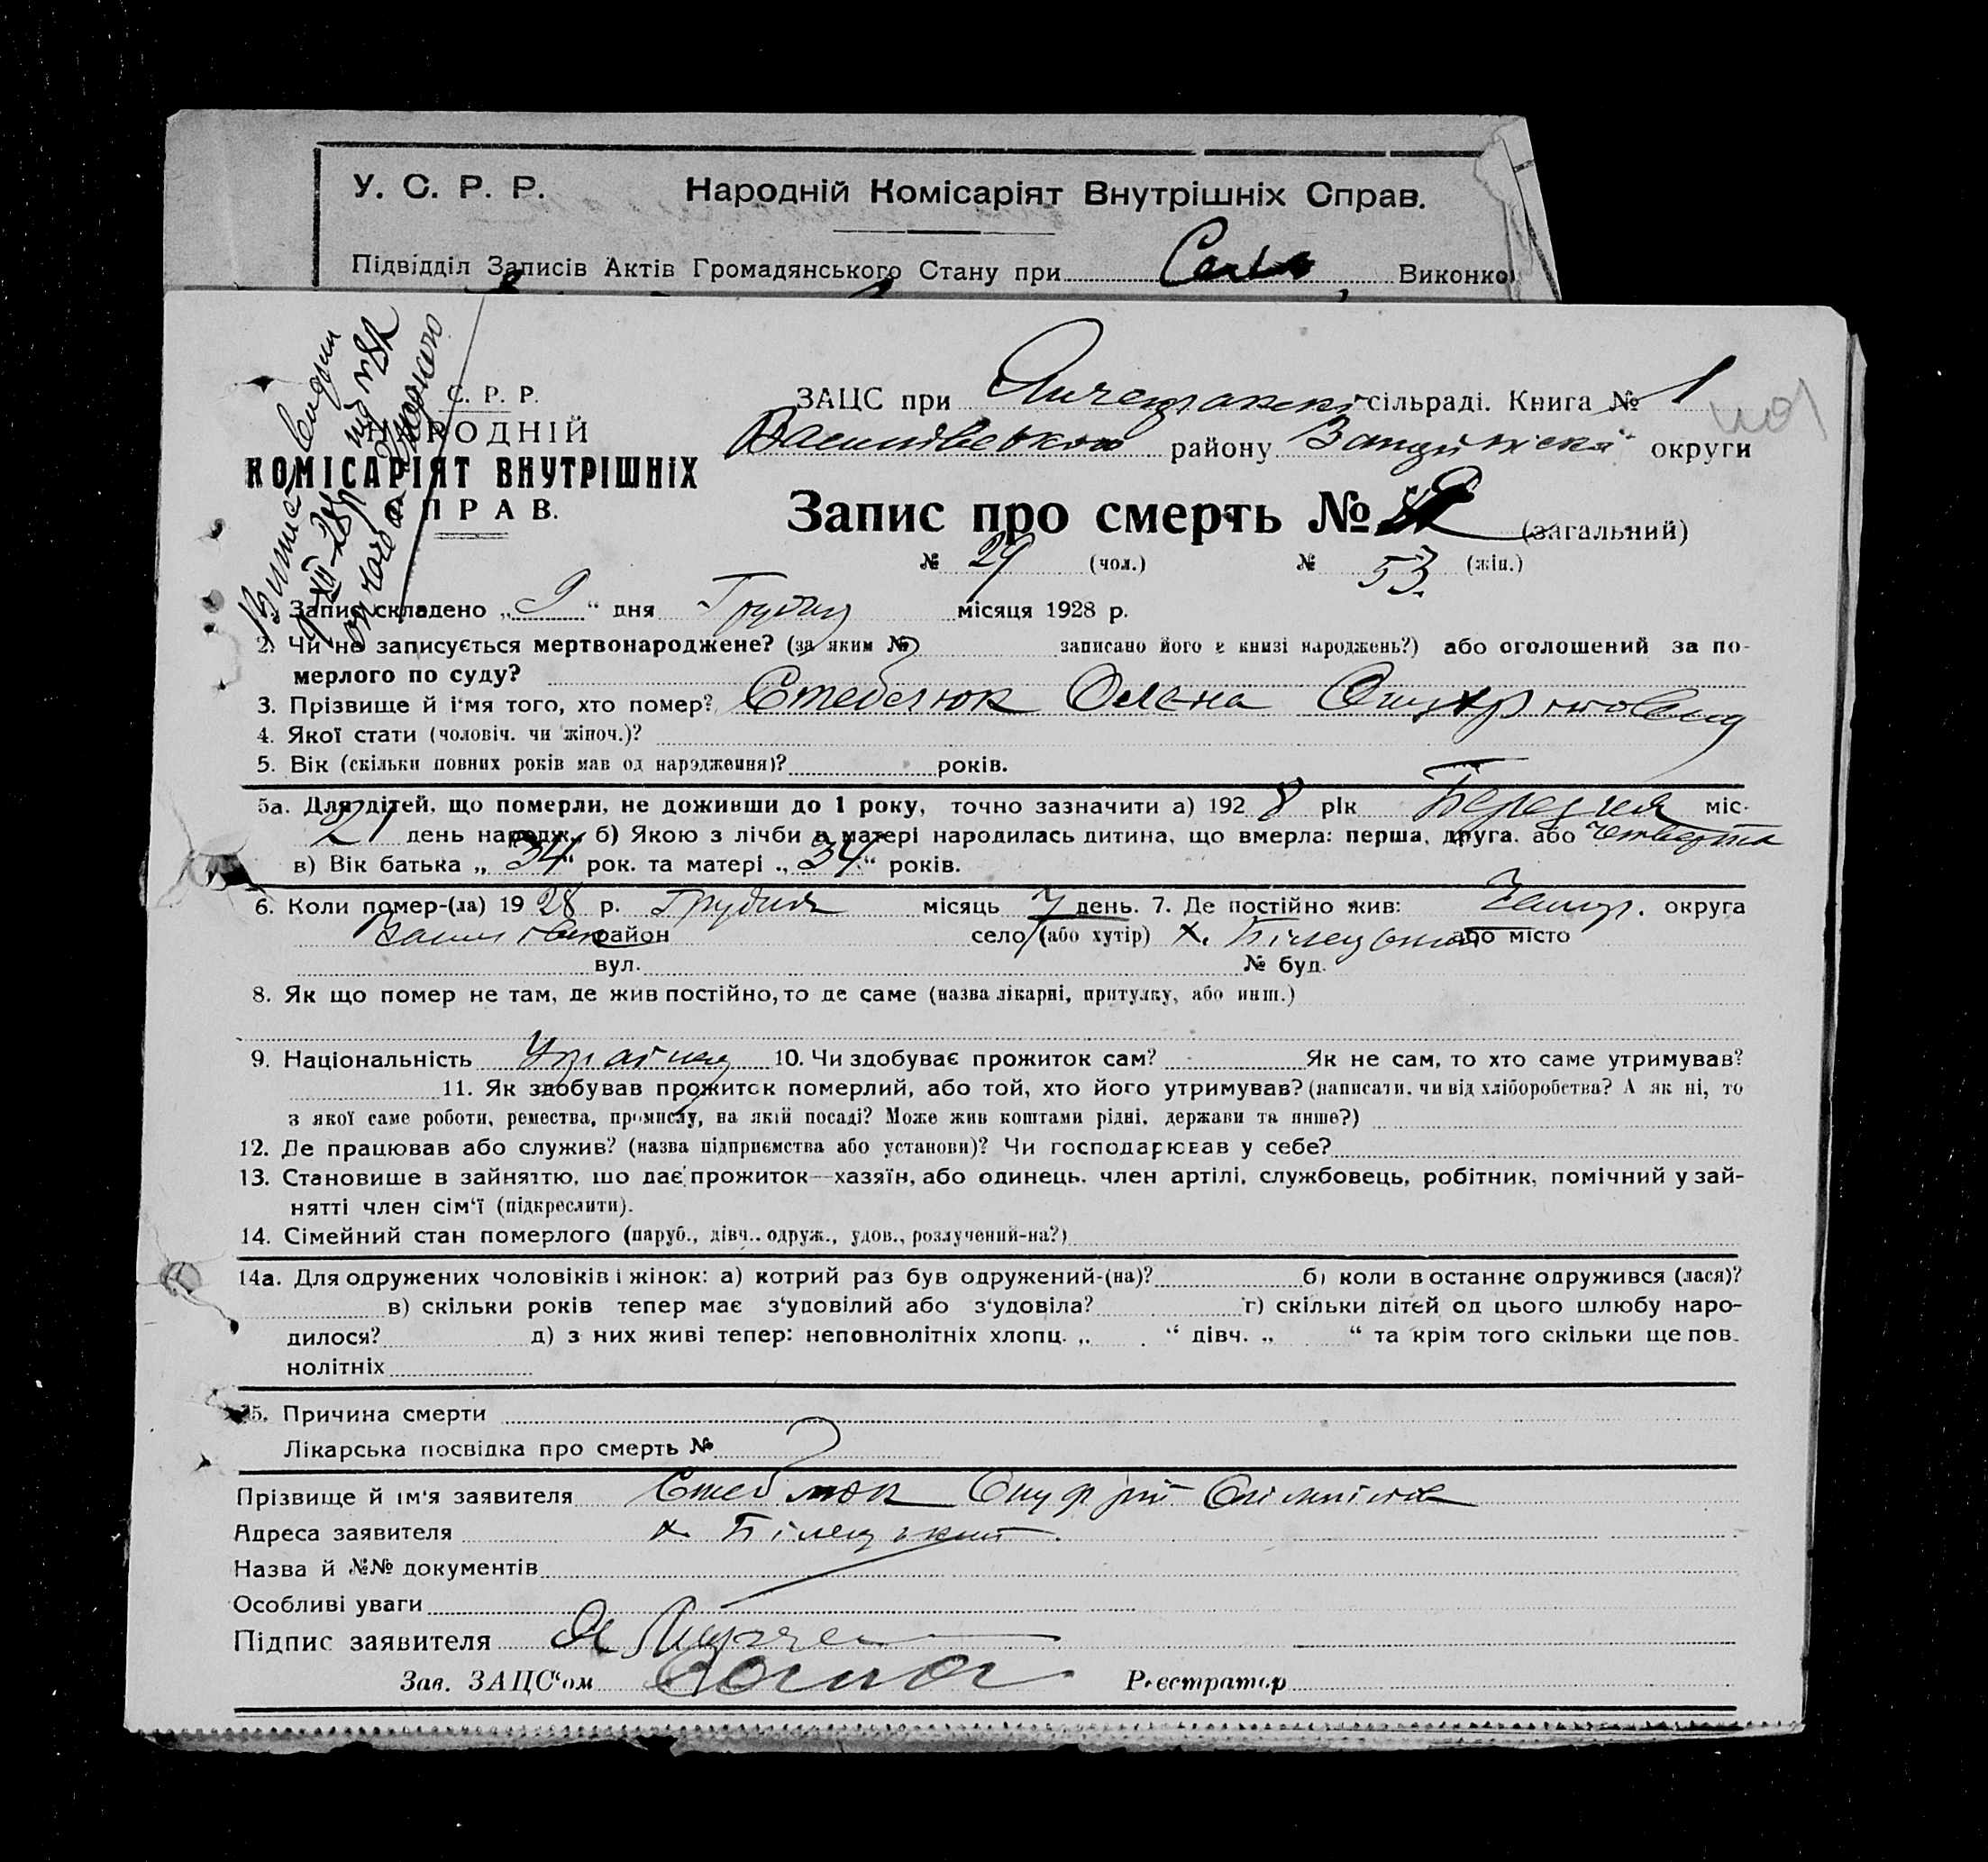 У. С. Р. Р. Народній Комісаріят Внутрішніх Справ.
Підвідділ Записів Актів Громадянського Стану при Виконко
С. Р. Р.
НАРОДНІЙ
КОМІСАРІЯТ ВНУТРІШНІХ
ПРАВ.
ЗАЦС при сільраді. Книга № 1
Василівського району округи
Запис про смерть № (загальний)
№ 29 (чол.) № 53. (жін.)
Запис складено „ 9 “ дня Грудня місяця 1928 р.
2. Чи не записується мертвонароджене? (за яким № записано його в книзі народжень?) або оголошений за по-
мерлого по суду?
3. Прізвище й ім'я того, хто помер? Стеблюк Олена Онуфріювна
4. Якої стати (чоловіч. чи жіноч.)?
5. Вік (скільки повних років мав од народження)? років.
5а. Для дітей, що померли, не доживши до 1 року, точно зазначити а) 192 8 рік Березня міс.
21 день народж. б) Якою з лічби в матері народилась дитина, що вмерла: перша, друга. або четверта
в) Вік батька „ 34 “ рок. та матері „ 34 “ років.
6. Коли помер-(ла) 19 28 р. Грудня місяць 7 день. 7. Де постійно жив: Запор. округа
район село (або хутір) х. Білецький або місто
вул. № буд.
8. Як що помер не там, де жив постійно, то де саме (назва лікарні, притулку, або инш.)
9. Національність 10. Чи здобуває прожиток сам? Як не сам, то хто саме утримував?
11. Як здобував прожиток померлий, або той, хто його утримував? (написати, чи від хліборобства? А як ні, то
з якої саме роботи, ремества, промислу, на якій посаді? Може жив коштами рідні, держави та инше?)
12. Де працював або служив? (назва підприємства або установи)? Чи господарював у себе?
13. Становище в зайняттю, що дає прожиток—хазяїн, або одинець, член артілі, службовець, робітник, помічний у зай-
нятті член сім'ї (підкреслити).
14. Сімейний стан померлого (паруб., дівч., одруж., удов., розлучений-на?)
14а. Для одружених чоловіків і жінок: а) котрий раз був одружений-(на)? б) коли востаннє одружився (лася)?
в) скільки років тепер має з'удовілий або з'удовіла? г) скільки дітей од цього шлюбу наро-
дилося? д) з них живі тепер: неповнолітніх хлопц. „ “ дівч. „ “ та крім того скільки ще пов.
нолітніх
15. Причина смерти
Лікарська посвідка про смерть №
Прізвище й ім'я заявителя Стеблюк Онуфрій
Адреса заявителя х. Білецький
Назва й №№ документів
Особливі уваги
Підпис заявителя
Зав. ЗАЦС'ом Реєстратор